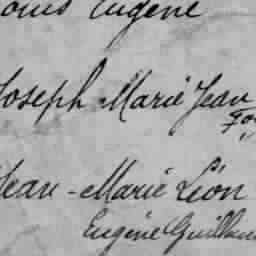 Louis Eugène
Joseph Marie Jean
Jean-Marie Léon
Eugène Guillaume